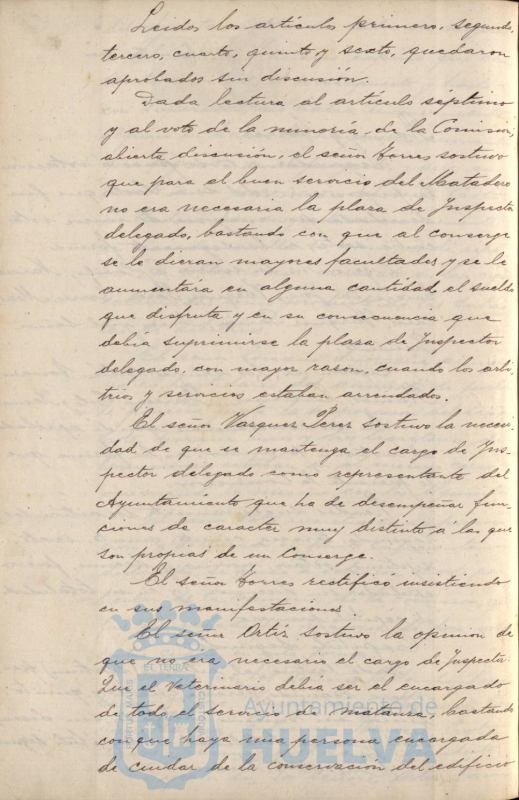 Leidos los artículos primero, segundo,
tercero, cuarto, quinto y sexto, quedaron
aprobados sin discusión.
Dada lectura al artículo séptimo
y al voto de la minoría de la Comisión,
abierta discusión, el señor Torres sostuvo
que para el buen servicio del Matadero
no era necesaria la plaza de Inspector
delegado, bastando con que al conserge
se le dieran mayores facultades y se le
aumentára en alguna cantidad el sueldo
que disfruta y en su consecuencia que
debía suprimirse la plaza de Inspector
delegado, con mayor rason, cuando los arbi-
trios y servicios estaban arrendados.
El señor Vasquez Perez sostuvo la necesi-
dad de que se mantenga el cargo de Ins-
pector delegado como representante del
Ayuntamiento que ha de desempeñar fun-
ciones de caracter muy distinto á las que
son propias de un Conserge.
El señor Torres rectificó insistiendo
en sus manifestaciones.
El señor Ortiz sostuvo la opinion de
que no era necesario el cargo de Inspector.
Que el Veterinario debia ser el encargado
de todo el servicio de matansa, bastando
con que haya una persona encargada
de cuidar de la conservación del edificio
Ayuntamiento de
HUELVA